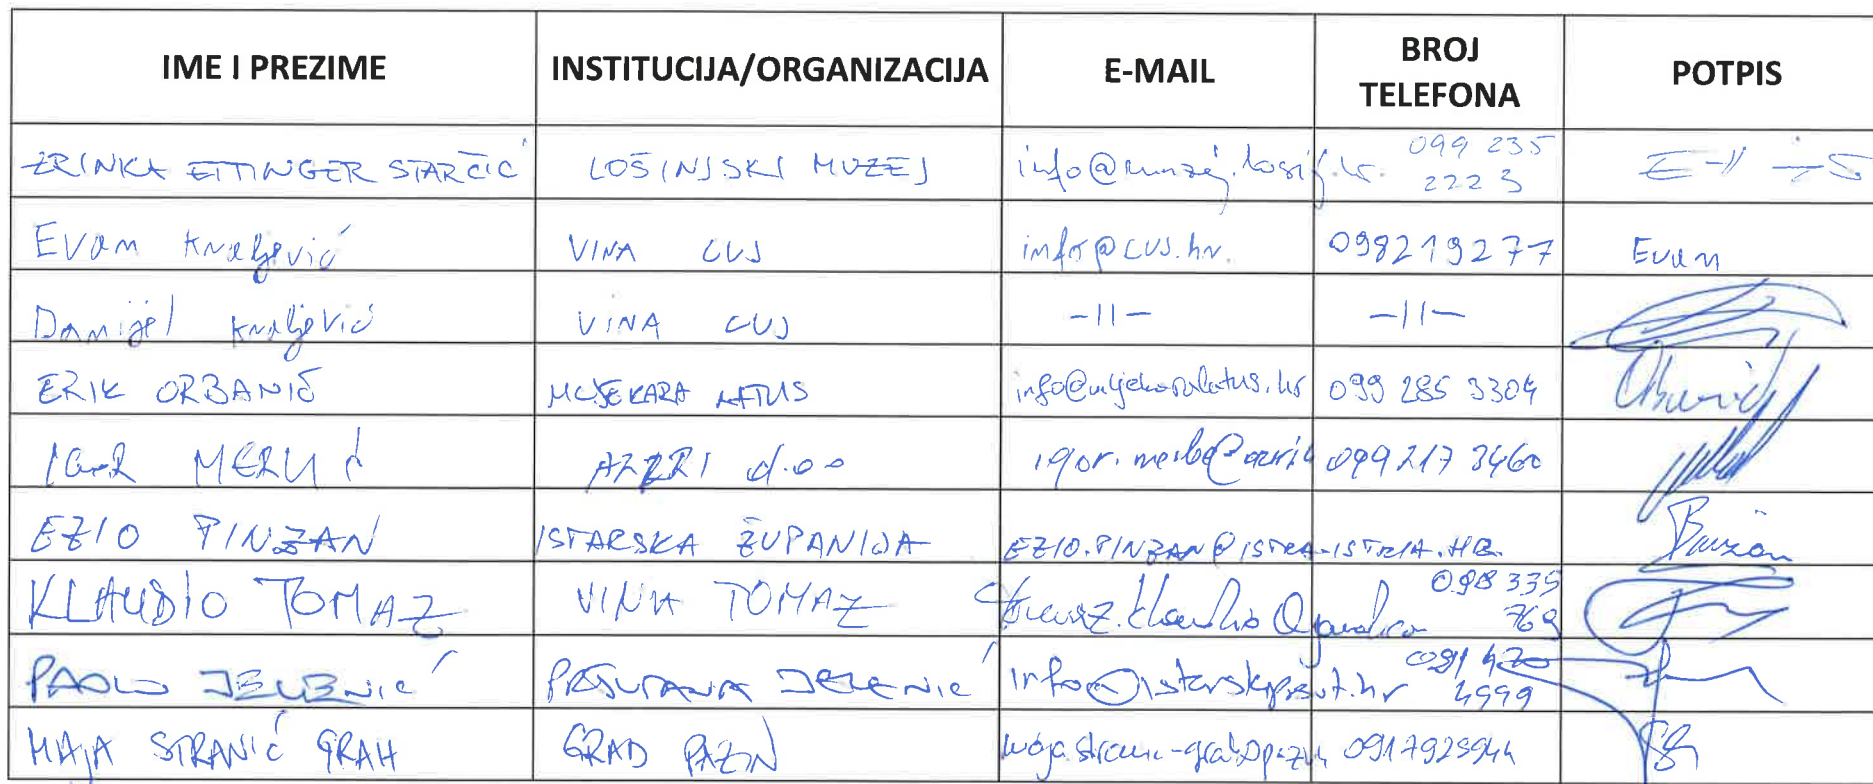 IME I PREZIME INSTITUCIJA/ORGANIZACIJA E-MAIL BROJ TELEFONA POTPIS
ZRINKA ETTINGER STARČIĆ LOŠINJSKI MUZEJ 099 235 2223
Evan Kraljević VINA CUJ info@cuj.hr. 098219277 Evan
Danijel Kraljević VINA CUJ -||- -||-
ERIK ORBANIĆ MLJEKARA LATUS info@mljekaralatus.hr 099 285 3304
AZZRI d.o.o 099 217 3460
EZIO PINZAN ISTARSKA ŽUPANIJA EZIO.PINZAN@ISTRA-ISTRIA.HR Pinzan
KLAUDIO TOMAZ VINA TOMAZ 098 335 769
PAOLO JELENIĆ PRŠUTANA JELENIĆ info@istarskiprsut.hr 4999
MAJA STRANIĆ GRAH GRAD PAZIN